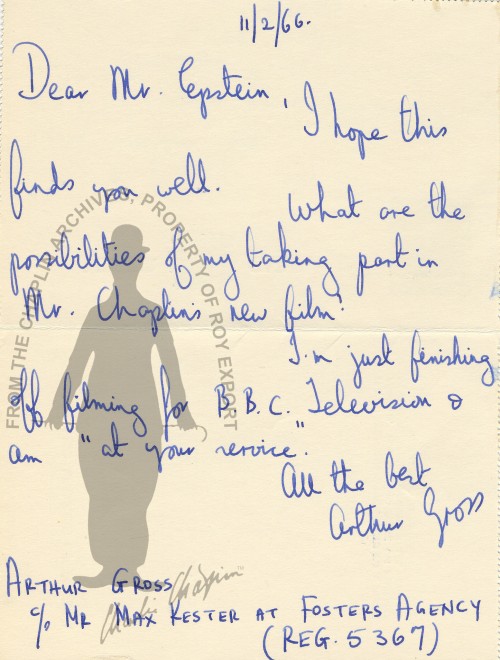 11/2/66.
Dear Mr. Epstein,
I hope this
finds you well.
What are the
possibilities of my taking part in
Mr. Chaplin's new film?
I'm just finishing
off filming for B.B.C. Television &
am "at your service."
All the best
Arthur Gross
ARTHUR GROSS
c/o MR MAX KESTER AT FOSTERS AGENCY
(REG. 5367)
FROM THE CHAPLIN ARCHIVES, PROPERTY OF ROY EXPORT
Charlie Chaplin